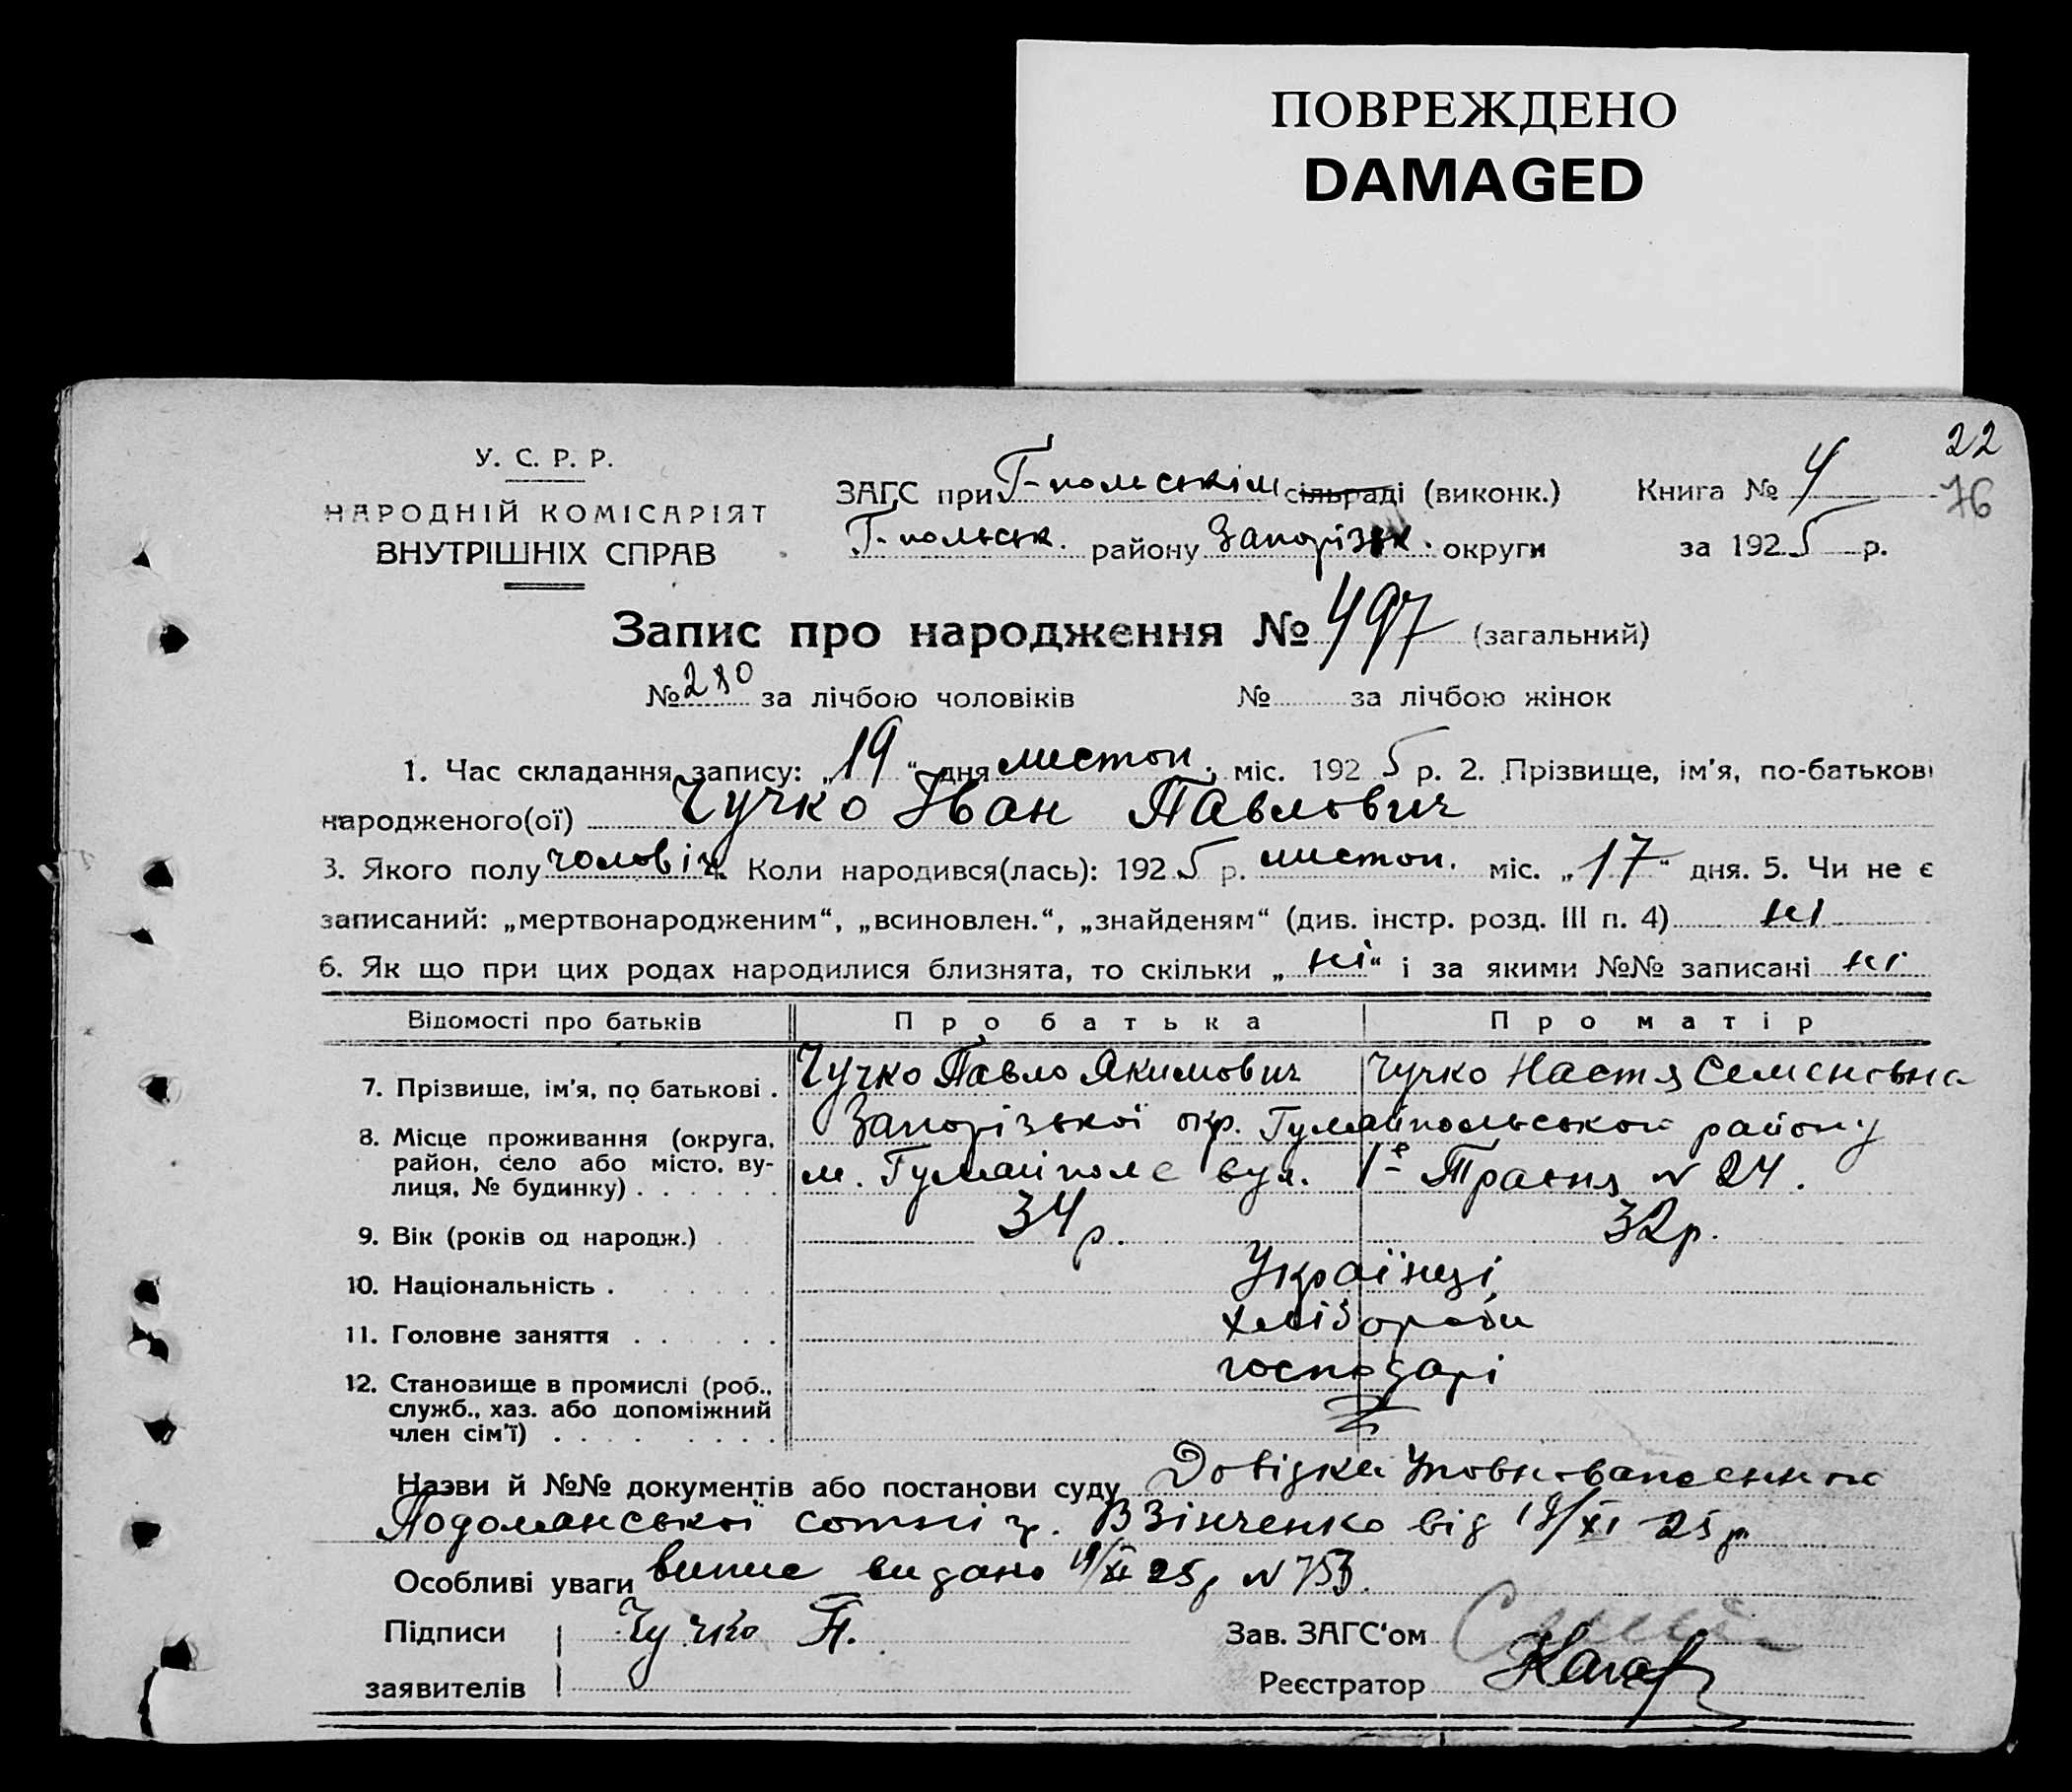 ПОВРЕЖДЕНО
DAMAGED
22
76
У. С. Р. Р.
НАРОДНІЙ КОМІСАРІЯТ
ВНУТРІШНІХ СПРАВ
ЗАГС при Г-польськім сільраді (виконк.)
Г.польськ. району Запорізьк. округи
Книга № 4
за 1925 р.
Запис про народження № 497 (загальний)
№ 280 за лічбою чоловіків № за лічбою жінок
1. Час складання запису: „19“ дня листоп. міс. 1925 р. 2. Прізвище, ім'я, по-батькові
народженого(ої) Чучко Іван Павлович
3. Якого полу чоловіч. Коли народився(лась): 1925 р. листоп. міс. „17“ дня. 5. Чи не є
записаний: „мертвонародженим“, „всиновлен.“, „знайденям“ (див. інстр. розд. III п. 4) ні
6. Як що при цих родах народилися близнята, то скільки „ні“ і за якими №№ записані ні
Відомості про батьків Про батька Про матір
7. Прізвище, ім'я, по батькові . Чучко Павло Якимович Чучко Настя Семеновна
8. Місце проживання (округа, район, село або місто, вулиця, № будинку) . . . . . . Запорізької окр. Гуляйпольської району
м. Гуляйполе вул. 1е Травня N 24.
9. Вік (років од народж.) 34 р. 32 р.
10. Національність . Українці
11. Головне заняття . . . . . хліборoби
12. Становище в промислі (роб., служб., хаз. або допоміжний член сім'ї) . . . . . . . господарі
Назви й №№ документів або постанови суду Довідка Уповноваженника
Подолянської сотні гр. В Зінченко від 18/XI 25 р
Особливі уваги випис видано 19/XI 25 р N 753.
Підписи Чучко П.
заявителів
Зав. ЗАГС‘ом
Реєстратор